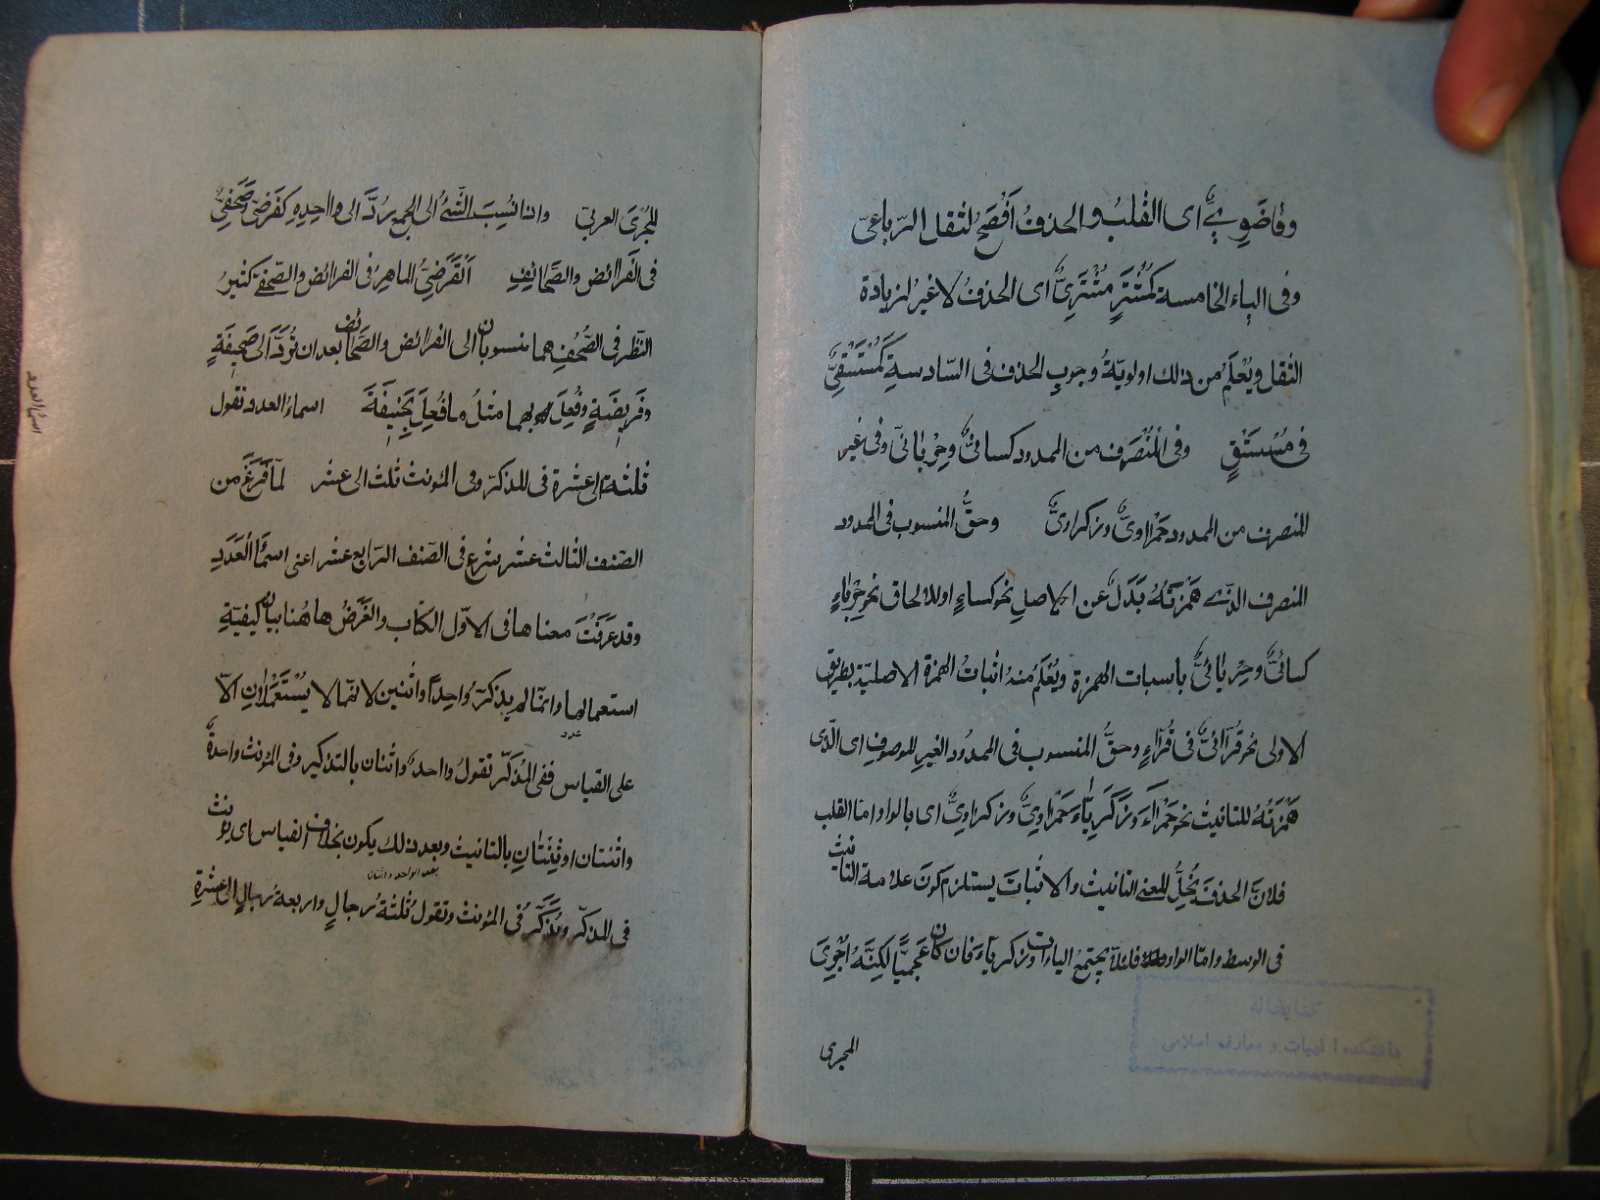 وقاضَوِیٌّ ای القلبُ والحذفُ اَفْصَحُ لثقل الرّباعی
وفی الیاء الخامسة کمُشْتَرٍ مُشْتَرِیٌّ ای الحذفُ لا غیرُ لزیادة
الثقل ویُعْلَمُ من ذلك اولویّةُ وجوبِ الحذف فی السّادسةِ کَمُسْتَسْقِیٍّ
فی مُسْتَسْقٍ وفی المُنْصَرف من الممدود کسائیٌّ وحِرْبائیٌّ وفی غیر
المنصرف من الممدود حَمْراویٌّ وزکراویٌّ وحقُّ المنسوب فی الممدود
المنصرف الذی هَمْزَتُهُ بَدَلٌ عن الاصلِ نحو کساءٍ او للالحاق نحو حِرْباءٍ
کسائیٌّ وحِرْبائیٌّ باسبات الهمزة ویُعْلَمُ منهُ اثباتُ الهمزة الاصلیّة بطریق
الاولی نحو قُرّائیٌّ فی قُرّاءٍ وحقُّ المنسوب فی الممدود الغیر للموصوفِ ای الّذی
هَمْزَتُهُ للتانیث نحو حَمْراءَ وزَکَرِیّاءَ حَمْراوِیٌّ وزکراوِیٌّ ای بالواو امّا القلب
فلانّ الحذفَ یُخِلُّ للمعنی التانیث والاثباتَ یستلزم کونَ علامة التانیث
فی الوسط وامّا الواو فلئلاّ یجتمعُ الیاءات وزکریّاء وان کان عَجَمیًّا لکِنَّهُ اُجْرِیَ
المجری
کتابخانه
دانشکده ادبیات و معارف اسلامی
المجْرَی العربیّ واذا نُسِبَ الشّئُ الی الجمع یرُدَّ الی واحِدِهِ کفَرَضِیٍّ وصَحَفِیٍّ
فی الفَرائض والصَّحائفِ اَلْفَرَضِیُّ الماهِرُ فی الفرائض والصّحفیّ کثیرُ
النّظر فی الصُّحُفِ هما منسوبان الی الفرائض والصّحائف بعد ان تُرَدَّ الی صَحِیفَةٍ
وفَرِیضَةٍ وفُعِلَ بهما مثلُ ما فُعِلَ بِحَنِیفَةَ اسماءُ العدد تقول
ثلثة الی عشرة فی المذکر وفی المؤنث ثلث الی عشر لمّا فَرَغَ من
الصّنف الثالث عشر شرع فی الصّنف الرّابع عشر اعنی اسماءَ العَدَدِ
وقد عَرَفْتَ معناها فی الاوّل الکتاب والغَرَضُ هاهُنا بیان کیفیّةِ
استعمالها وانّما لم یذکرْ واحِدًا واثنین لانّهما لا یُسْتَعْمَلانِ الاّ
علی القیاس ففی المُذَکّر تقولُ واحد واثنان بالتذکیر وفی المؤنث واحدةٌ
واثنتان او ثِنْتانِ بالتانیث وبعد ذلك یکون بخلاف القیاس ای یؤنث
بعد الواحد واثنان
فی المذکّر ویُذَکَّرُ فی المؤنث وتقولُ ثلثةُ رجالٍ واربعةُ رجالٍ الی عشرةِ
اسماء العدد